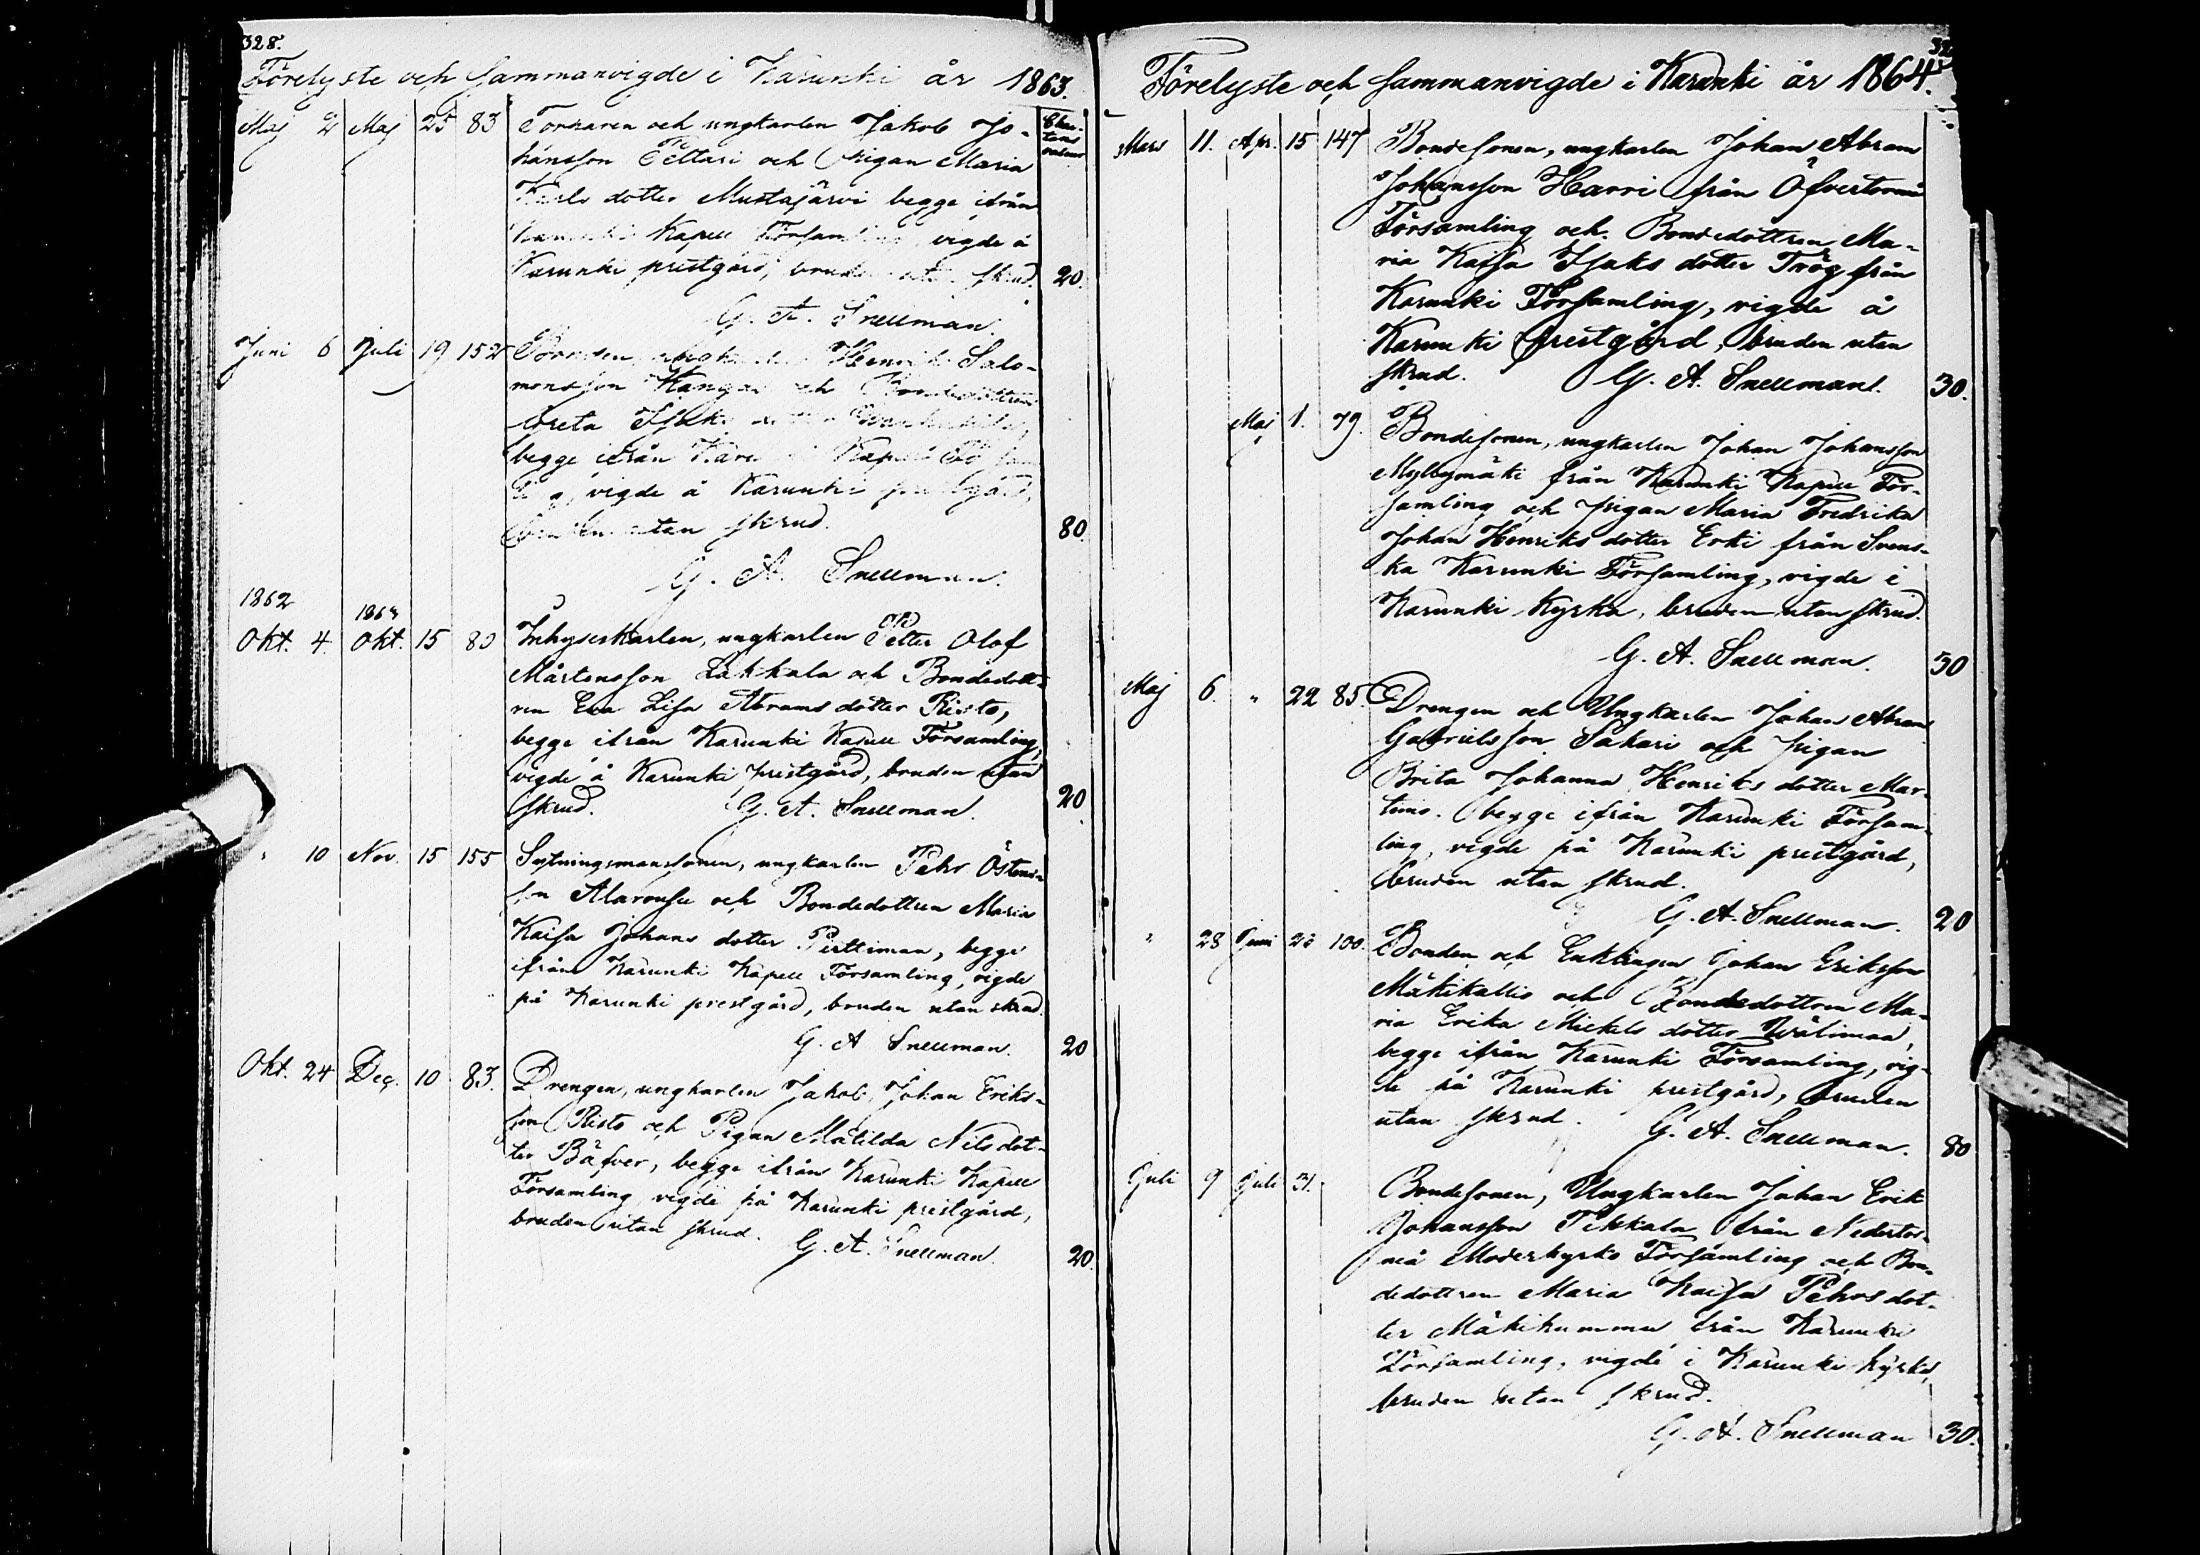 328.
Förelyste och Sammanvigde i Karunki år 1863.
Maj 2 Maj 25 83 Torparen och ungkarlen Jakob Jo-
hansson Pettari och Pigan Maria
Karls dotter Mustajärvi begge ifrån
Karunki Kapell Församling, vigde å
Karunki prestgård, bruden utan skrud. 20.
G. A. Snellman.
Juni 6 Juli 19 152 Bonden, ungkarlen Henrik Salo-
monsson Kangas och Bondedottren
Greta Isaks dotter
begge ifrån Karunki Kapell Försam-
ling, vigde å Karunki prestgård,
bruden utan skrud. 80
G. A. Snellman.
1862 1863
Okt. 4. Okt. 15 80 Inhyseskarlen, ungkarlen Petter Olof
Mårtensson Lakkala och Bondedott-
ren Eva Lisa Abrams dotter Risto,
begge ifrån Karunki Kapell Församling,
vigde å Karunki prestgård, bruden utan
skrud. G. A. Snellman. 20
" 10 Nov. 15 155 Sytningsmanssonen, ungkarlen Pehr Östens-
son Alarousu och Bondedottren Maria
Kaisa Johans dotter Perttiman, begge
ifrån Karunki Kapell Församling, vigde
på Karunki prestgård, bruden utan skrud.
G. A Snellman. 20
Okt. 24 Dec. 10 83. Drengen, ungkarlen Jakob Johan Eriks-
son Risto och Pigan Matilda Nils dot-
ter Bäfver, begge ifrån Karunki Kapell
Församling vigde på Karunki prestgård,
bruden utan skrud. G. A. Snellman. 20.
Förelyste och Sammanvigde i Karunki år 1864.
Mars 11. Apr. 15 147 Bondesonen, ungkarlen Johan Abram
Johansson Harri från Öfvertorneå
Församling och Bondedottren Ma-
ria Kaisa Isaks dotter Trög från
Karunki Församling, vigde å
Karunki prestgård, bruden utan
skrud. G. A. Snellman. 30.
Maj 1. 79. Bondesonen, ungkarlen Johan Johansson
Myllymäki från Karunki Kapell För-
samling och pigan Maria Fredrika
Johan Henriks dotter Erki från Svens-
ka Karunki Församling, vigde i
Karunki Kyrka, bruden utan skrud.
G. A. Snellman. 50
Maj 6. " 22 85. Drengen och Ungkarlen Johan Abram
Gabrielsson Sakari och pigan
Brita Johanna Henriks dotter Mar-
timo. begge ifrån Karunki Försam-
ling, vigde på Karunki prestgård,
bruden utan skrud.
G. A. Snellman. 20
" 28 Juni 100. Bonden och Enklingen Johan Eriksson
Mäkikallio och Bondedottren Ma-
ria Erika Mickels dotter Wälimaa,
begge ifrån Karunki Församling, vig-
de på Karunki prestgård, bruden
utan skrud. G. A. Snellman. 80
Juli 9 Juli 31. Bondesonen, Ungkarlen Johan Erik
Johansson Pikkala från Nedertor-
neå Moderkyrko Församling och Bon-
dedottren Maria Kaisa Pehrs dot-
ter Mäkikummu från Karunki
Församling, vigde i Karunki kyrka,
bruden utan skrud.
G. A. Snellman 30.